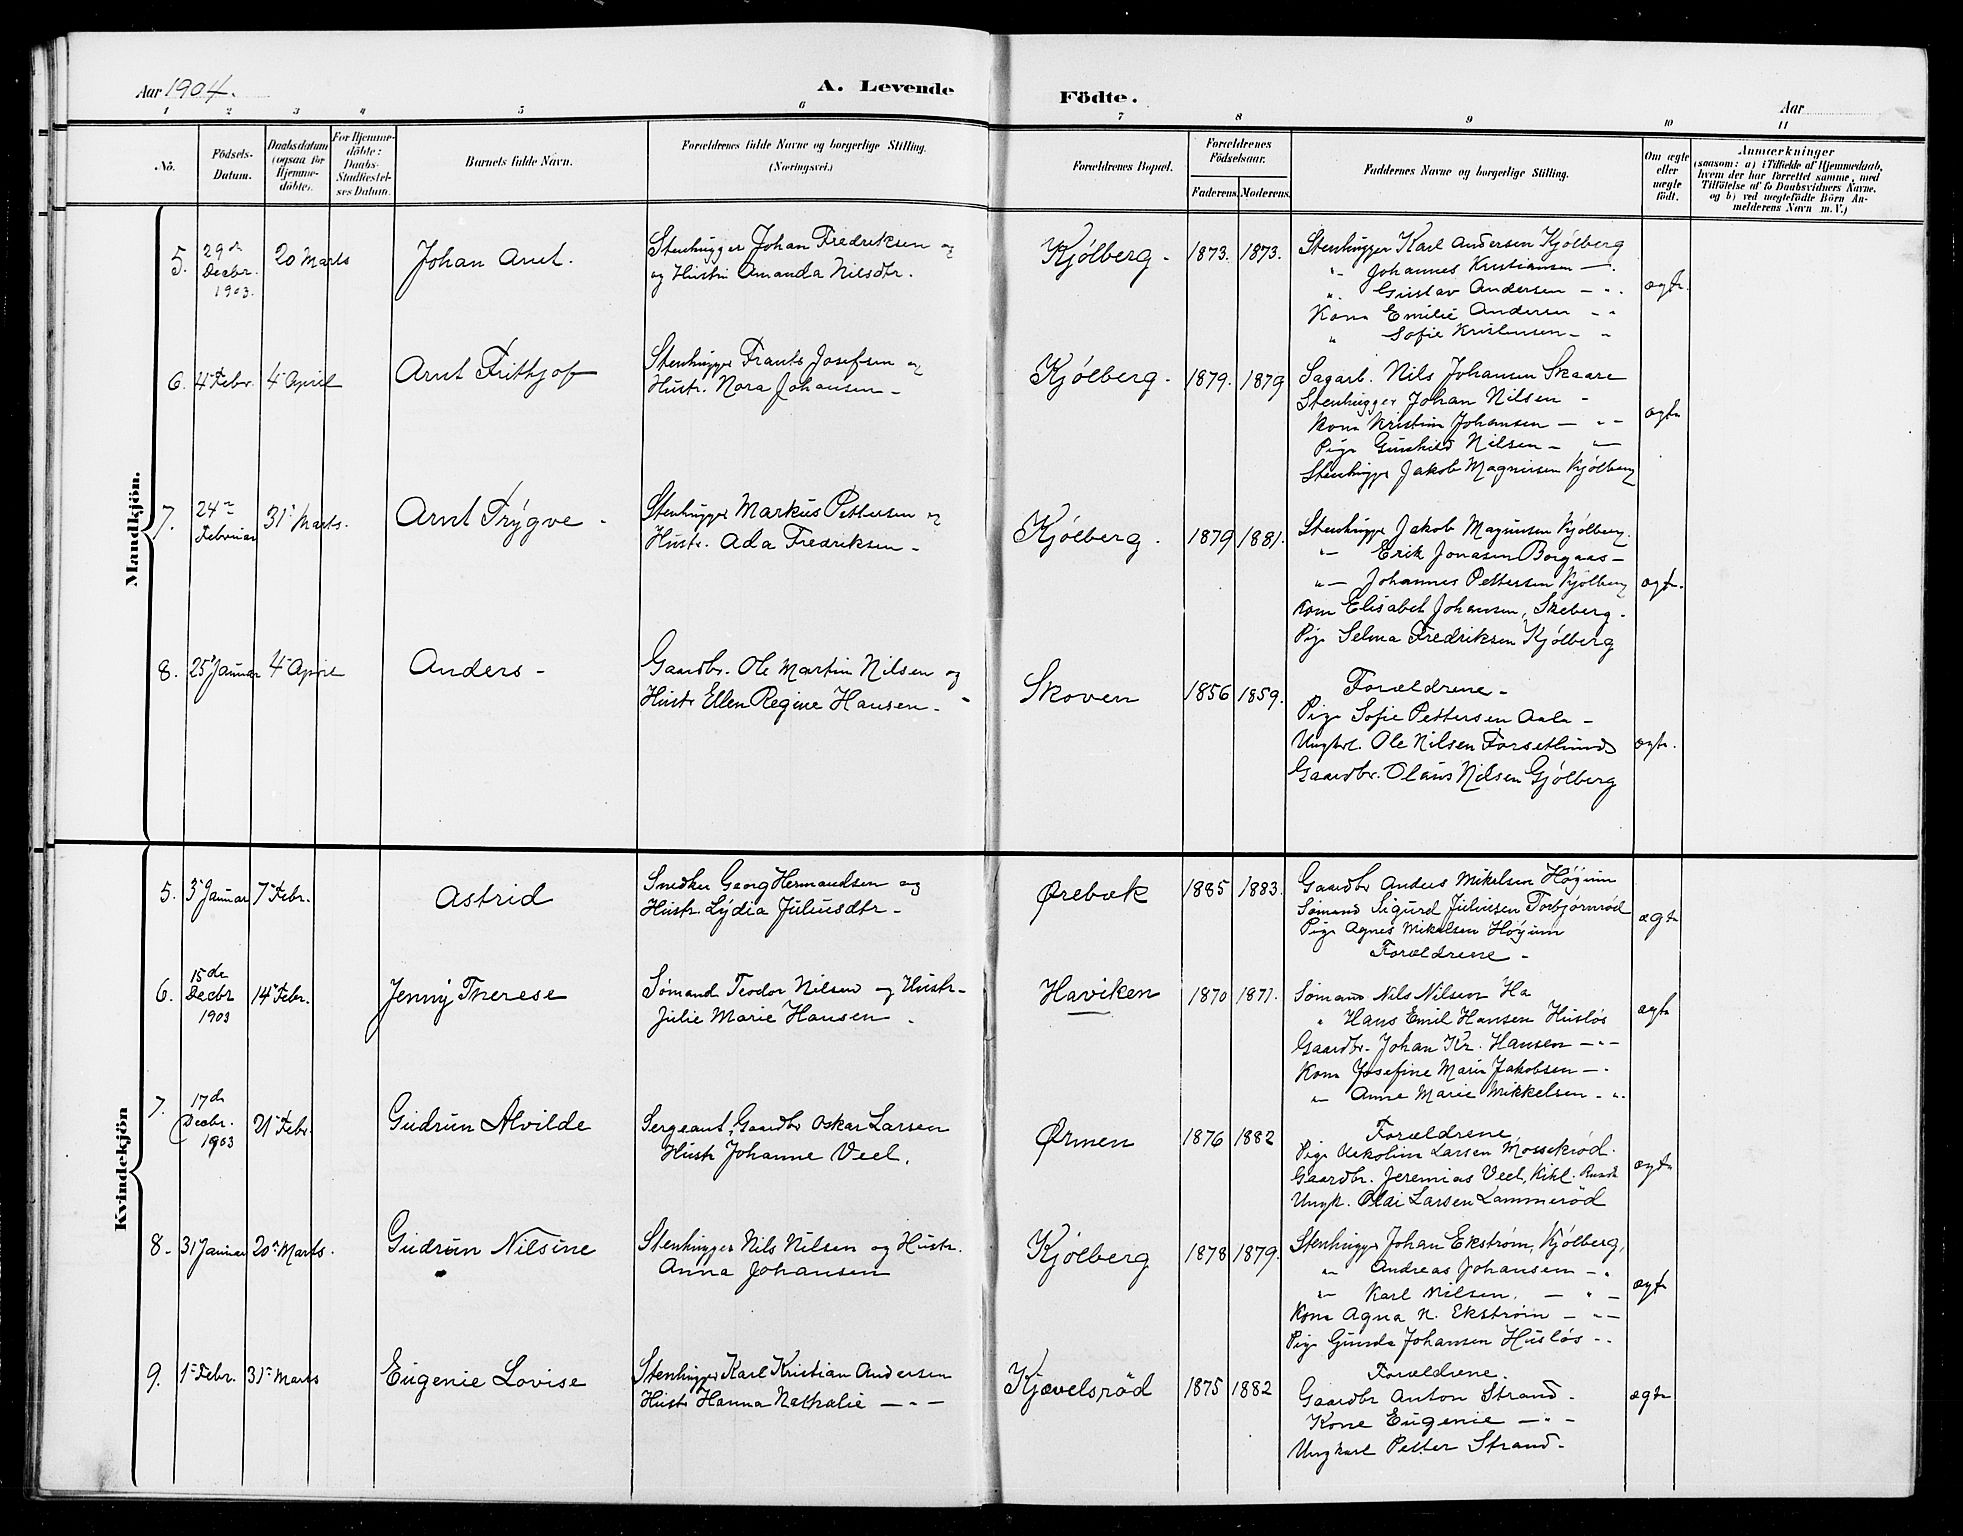 Aar 1904.
A. Levende Födte.
Aar
1 2 3 4 5 6 7 8 9 10 11
No.
Födsels-Datum.
Daabsdatum (ogsaa for Hjemmedöbte).
For Hjemmedöbte: Daabs-Stadfæstelses Datum.
Barnets fulde Navn.
Forældrenes fulde Navne og borgerlige Stilling.
(Næringsvei.)
Forældrenes Bopæl.
Forældrenes Födselsaar.
Faderens. Moderens.
Faddernes Navne og borgerlige Stilling.
Om ægte eller uægte födt.
Anmærkninger
(saasom: a) i Tilfælde af Hjemmedaab,
hvem der har forrettet samme, med
Tilföielse af to Daabsvidners Navne,
og b) ved uægtefödte Börn An-
melderens Navn m. V.)
Mandkjön.
5. 29de Decbr. 1903. 20 Marts Johan Arnt.
Stenhugger Johan Fredriksen og
og Hustru Amanda Nilsdtr.
Kjølberg. 1873. 1873.
Stenhugger Karl Andersen Kjølberg
" Johannes Kristiansen —.
" Gustav Andersen — ".
Kone Emilie Andersen — "
" Sofie Kristensen — "
ægte.
6. 4de Febr. 4de April Arnt Frithjof
Stenhugger Frants Josefsen og
Hustr. Nora Johansen —
Kjølberg. 1879. 1879
Sagarb. Nils Johansen Skaare
Stenhugger Johan Nilsen -
Kone Kristine Johansen — " —
Pige Gunhild Nilsen — " —
Stenhugger Jakob Magnusen Kjølberg
ægte
7. 24de Februar 31te Marts. Arnt Trygve -
Stenhugger Markus Pettersen og
Hustr. Ada Fredriksen —
Kjølberg. 1879 1881.
Stenhugger Jakob Magnusen Kjølberg.
" — Erik Jonasen Borgaas —
" — Johannes Pettersen Kjølberg
Kone Elisabet Johansen, Skeberg.
Pige Selma Fredriksen Kjølberg
ægte.
8. 25de Januar 4de April Anders —
Gaardbr. Ole Martin Nilsen og
Hustr Ellen Regine Hansen —
Skoven 1856 1859.
Forældrene —
Pige Sofie Pettersen Aale —
Ungkrl. Ole Nilsen Forsetlund
Gaardbr. Olaus Nilsen Gjølberg
ægte.
Kvindekjön
5. 3de Januar 7de Febr. Astrid
Snedker Georg Hermandsen og
Hustr Lydia Juliusdtr —
Ørebæk 1885 1883.
Gaardbr Anders Mikelsen Høyum
Sømand Sigurd Juliusen Torbjørnrød
Pige Agnes Mikelsen Høyum
Forældrene —
ægte
6. 15de Decbr 1903 14de Febr. Jenny Therese
Sømand Teodor Nilsen og Hustr.
Julie Marie Hansen .
Haviken 1870 1871.
Sømand Nils Nilsen Ha
" Hans Emil Hansen Husløs
Gaardbr. Johan Kr. Hansen — " —
Kone Josefine Marie Jakobsen — "
" — Anne Marie Mikkelsen — "
ægte
7. 17de Decbr. 1903 21de Febr. Gudrun Alvilde
Sergeant, Gaardbr Oskar Larsen
Hustr Johanne Veel.
Ørmen 1876 1882
Forældrene
Pige Larsen Mossekrød.
Gaardbr. Jeremias Veel, Kihl.
Ungk. Olai Larsen Lammerød
ægte
8. 31 Januar 20de Marts. Gudrun Nilsine
Stenhugger Nils Nilsen og Hustr.
Anna Johansen
Kjølberg 1878 1879.
Stenhugger Johan Ekstrøm, Kjølberg,
" — Andreas Johansen — "
" — Karl Nilsen. — " —
Kone Agna N. Ekstrøm — " —
Pige Gunda Johansen Husløs — "
ægte
9. 1de Febr. 31te Marts Eugenie Lovise
Stenhugger Karl Kristian Andersen
Hustr Hanna Nathalie — " —
Kjævelsrød 1875 1882
Forældrene.
Gaardbr Anton Strand.
Kone Eugenie — " —
Ungkarl Petter Strand.
ægte